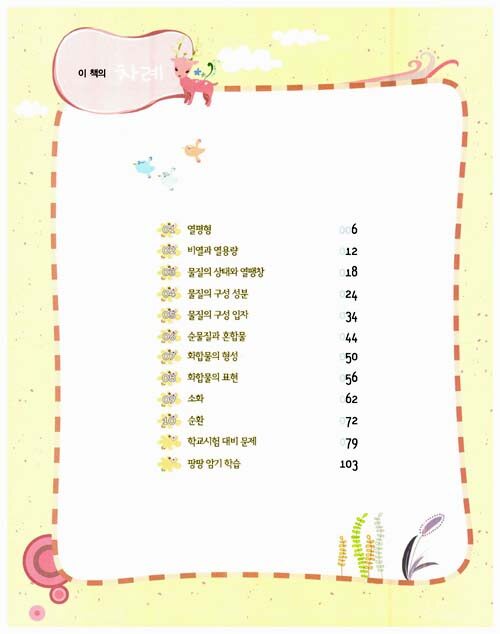 이 책의 차례
01 열평형 006
02 비열과 열용량 012
03 물질의 상태와 열팽창 018
04 물질의 구성 성분 024
05 물질의 구성 입자 034
06 순물질과 혼합물 044
07 화합물의 형성 050
08 화합물의 표현 056
09 소화 062
10 순환 072
학교시험 대비 문제 079
팡팡 암기 학습 103